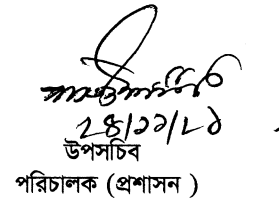 ২৪/১১/২১
উপসচিব
পরিচালক (প্রশাসন )